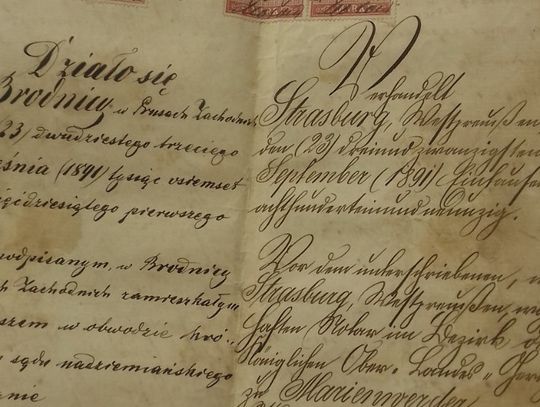 Działo się
Brodnicy, w Prusach Zachodnich
(23) dwudziestego trzeciego
(1891) tysiąc osiemset
pierwszego
podpisanym, w Brodnicy
Zachodnich zamieszkałym
w obwodzie kró-
sądu nadziemiańskiego
Verhandelt
Strasburg, Westpreußen
den (23) dreiundzwanzigsten
September (1891) Eintausend
achthunderteinundneunzig.
Vor dem unterschriebenen,
Strasburg, Westpreußen,
haften Notar im Bezirk
Königlichen Ober-Landes-
zu Marienwerder